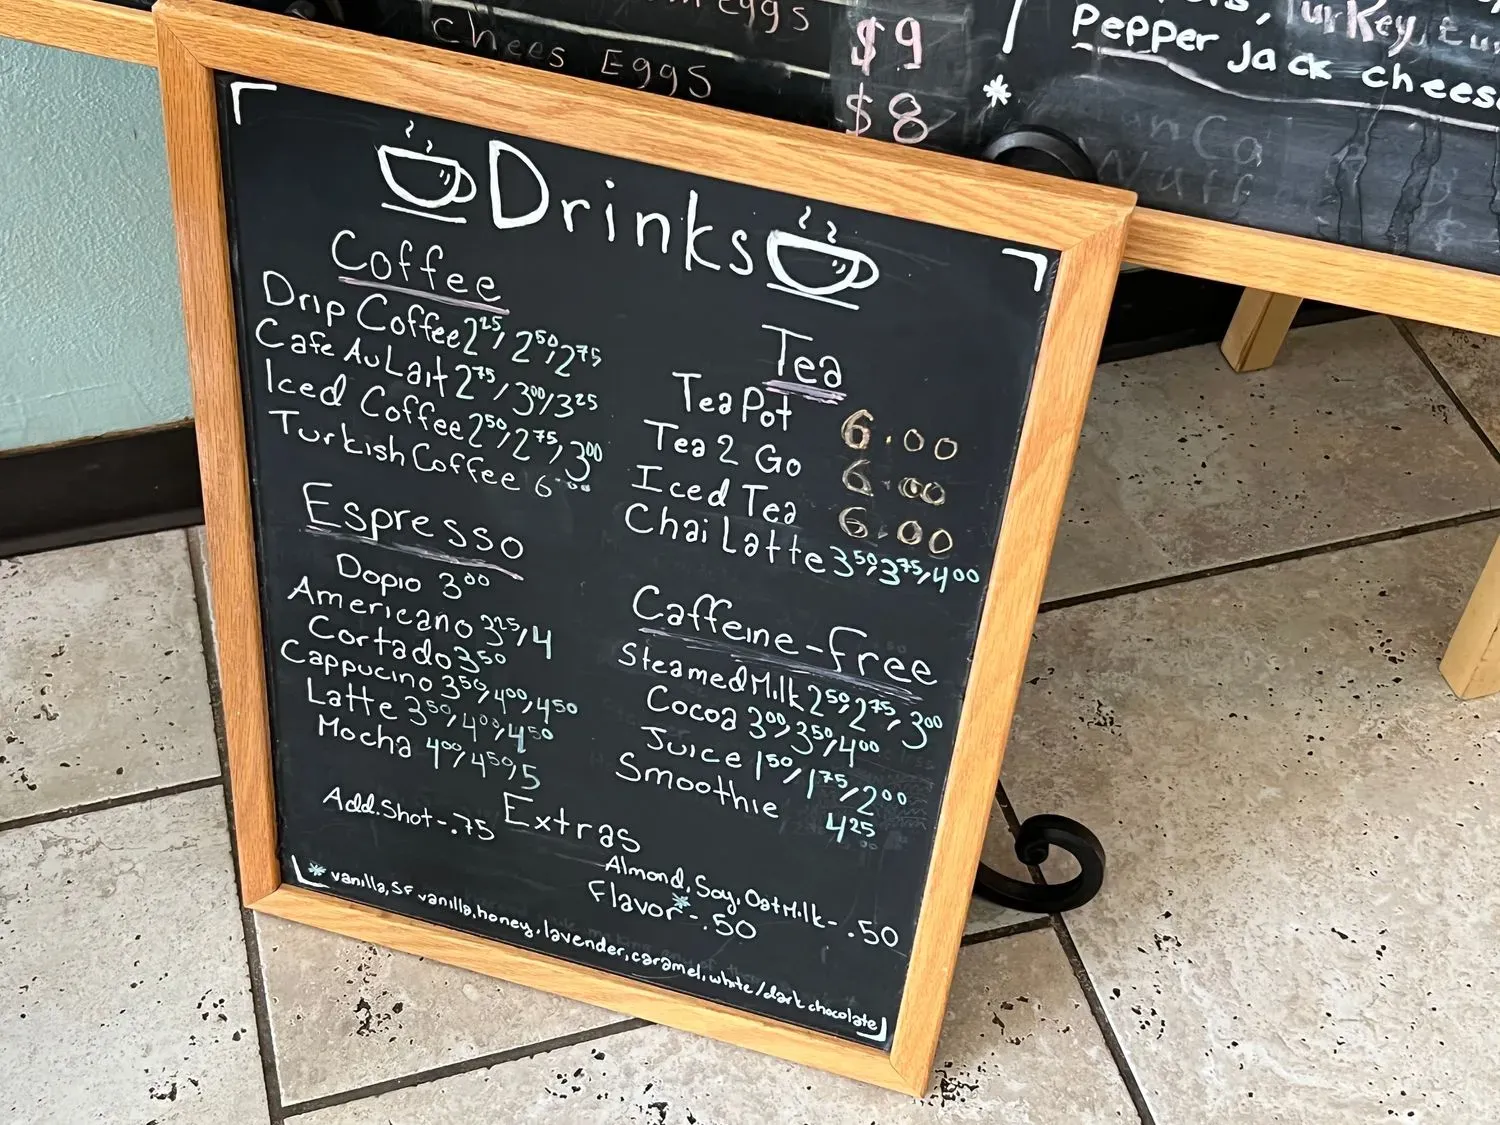 Eggs
$9
Chees Eggs
$8
Turkey,
Pepper Jack chees
*
Drinks
Coffee
Drip Coffee 2 25, 2 50, 2 75
Cafe Au Lait 2 75, 3 00, 3 25
Iced Coffee 2 50, 2 75, 3 00
Turkish Coffee 6.00
Espresso
Dopio 3 00
Americano 3 25, 4
Cortado 3 50
Cappucino 3 50, 4 00, 4 50
Latte 3 50, 4 00, 4 50
Mocha 4 00, 4 50, 5
Tea
Tea Pot 6.00
Tea 2 Go 6.00
Iced Tea 6.00
Chai Latte 3 50, 3 75, 4 00
Caffeine-Free
Steamed Milk 2 50, 2 75, 3 00
Cocoa 3 00, 3 50, 4 00
Juice 1 50, 1 75, 2 00
Smoothie 4 25
Extras
Add.Shot-.75
Almond, Soy, Oat Milk-.50
Flavor*-.50
* vanilla, SF vanilla, honey, lavender, caramel, white/dark chocolate